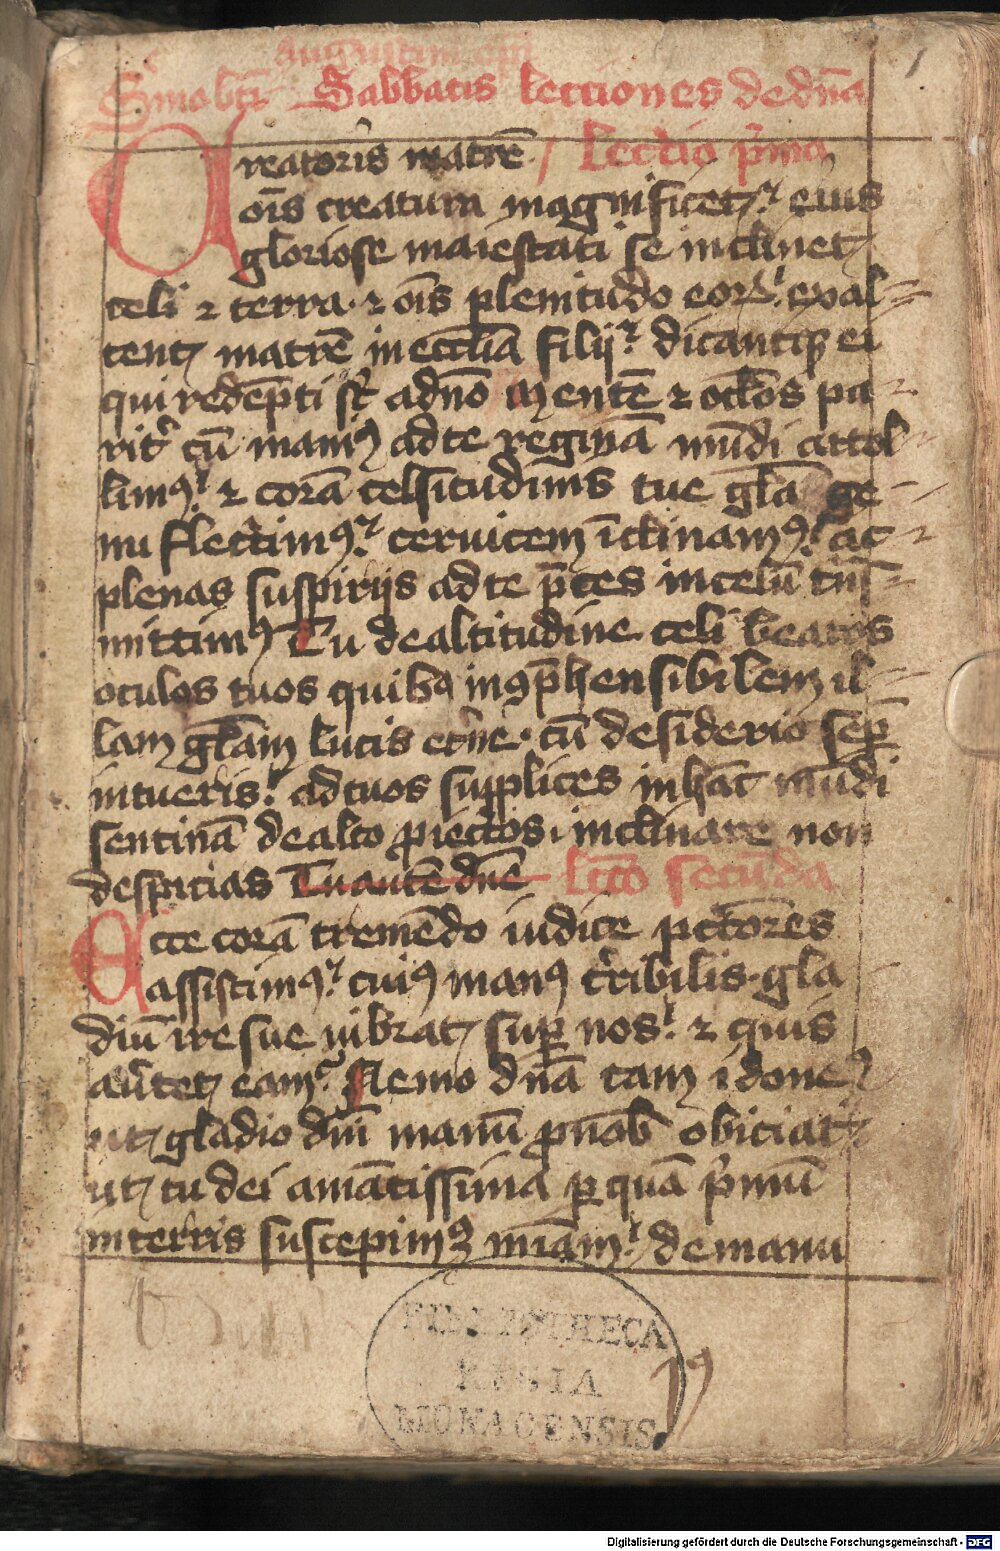 augustini epi
Smo bti Sabbatis lectiones de dna
1
Creatoris matrē / Lectio pͥma
oīs creatura magnificet eius
gloriose maiestati se inclinet
celi ⁊ terra · ⁊ oīs plenitudo eoꝝ exal
tent matrē in eccl̄ia filij dicantqꝫ ei
qui redēpti st̄ ad dno mentē ⁊ oclos pa
rit cū maniꝰ ad te reginā mūdi attol
limꝰ ⁊ corā celsitudinis tue gl̄a ge
nu flectimꝰ ceruicem īclinamꝰ ac
plenas suspirijs ad te p̄ces in celū tn̄s
mittimꝰ Tu de altitudine celi beatos
oculos tuos quibꝰ incōp̄hensibilem il
lam gl̄am lucis et̄ne · cū desiderio semp̄
intueris ad tuos supplices in hāc mūdi
sentinā de alto ꝓiectos inclinare non
despicias Tu autē dn̄e Lcō secūda
Ecce corā tremēdo iudice pctores
assistimꝰ cuiꝰ manꝰ t̄ribilis · gla
diū ire sue uibrat sup̄ nos ⁊ quis
au̅tet eam Nemo dn̄a tam idoneꝰ
ut gladio dn̄i manū ꝓ nob̄ obiciat
ut tu dei amātissima ꝑ quā pͥmū
in terris suscepimꝰ miām de manu
BIBLIOTHECA
REGIA
MONACENSIS.
19
Digitalisierung gefördert durch die Deutsche Forschungsgemeinschaft - DFG